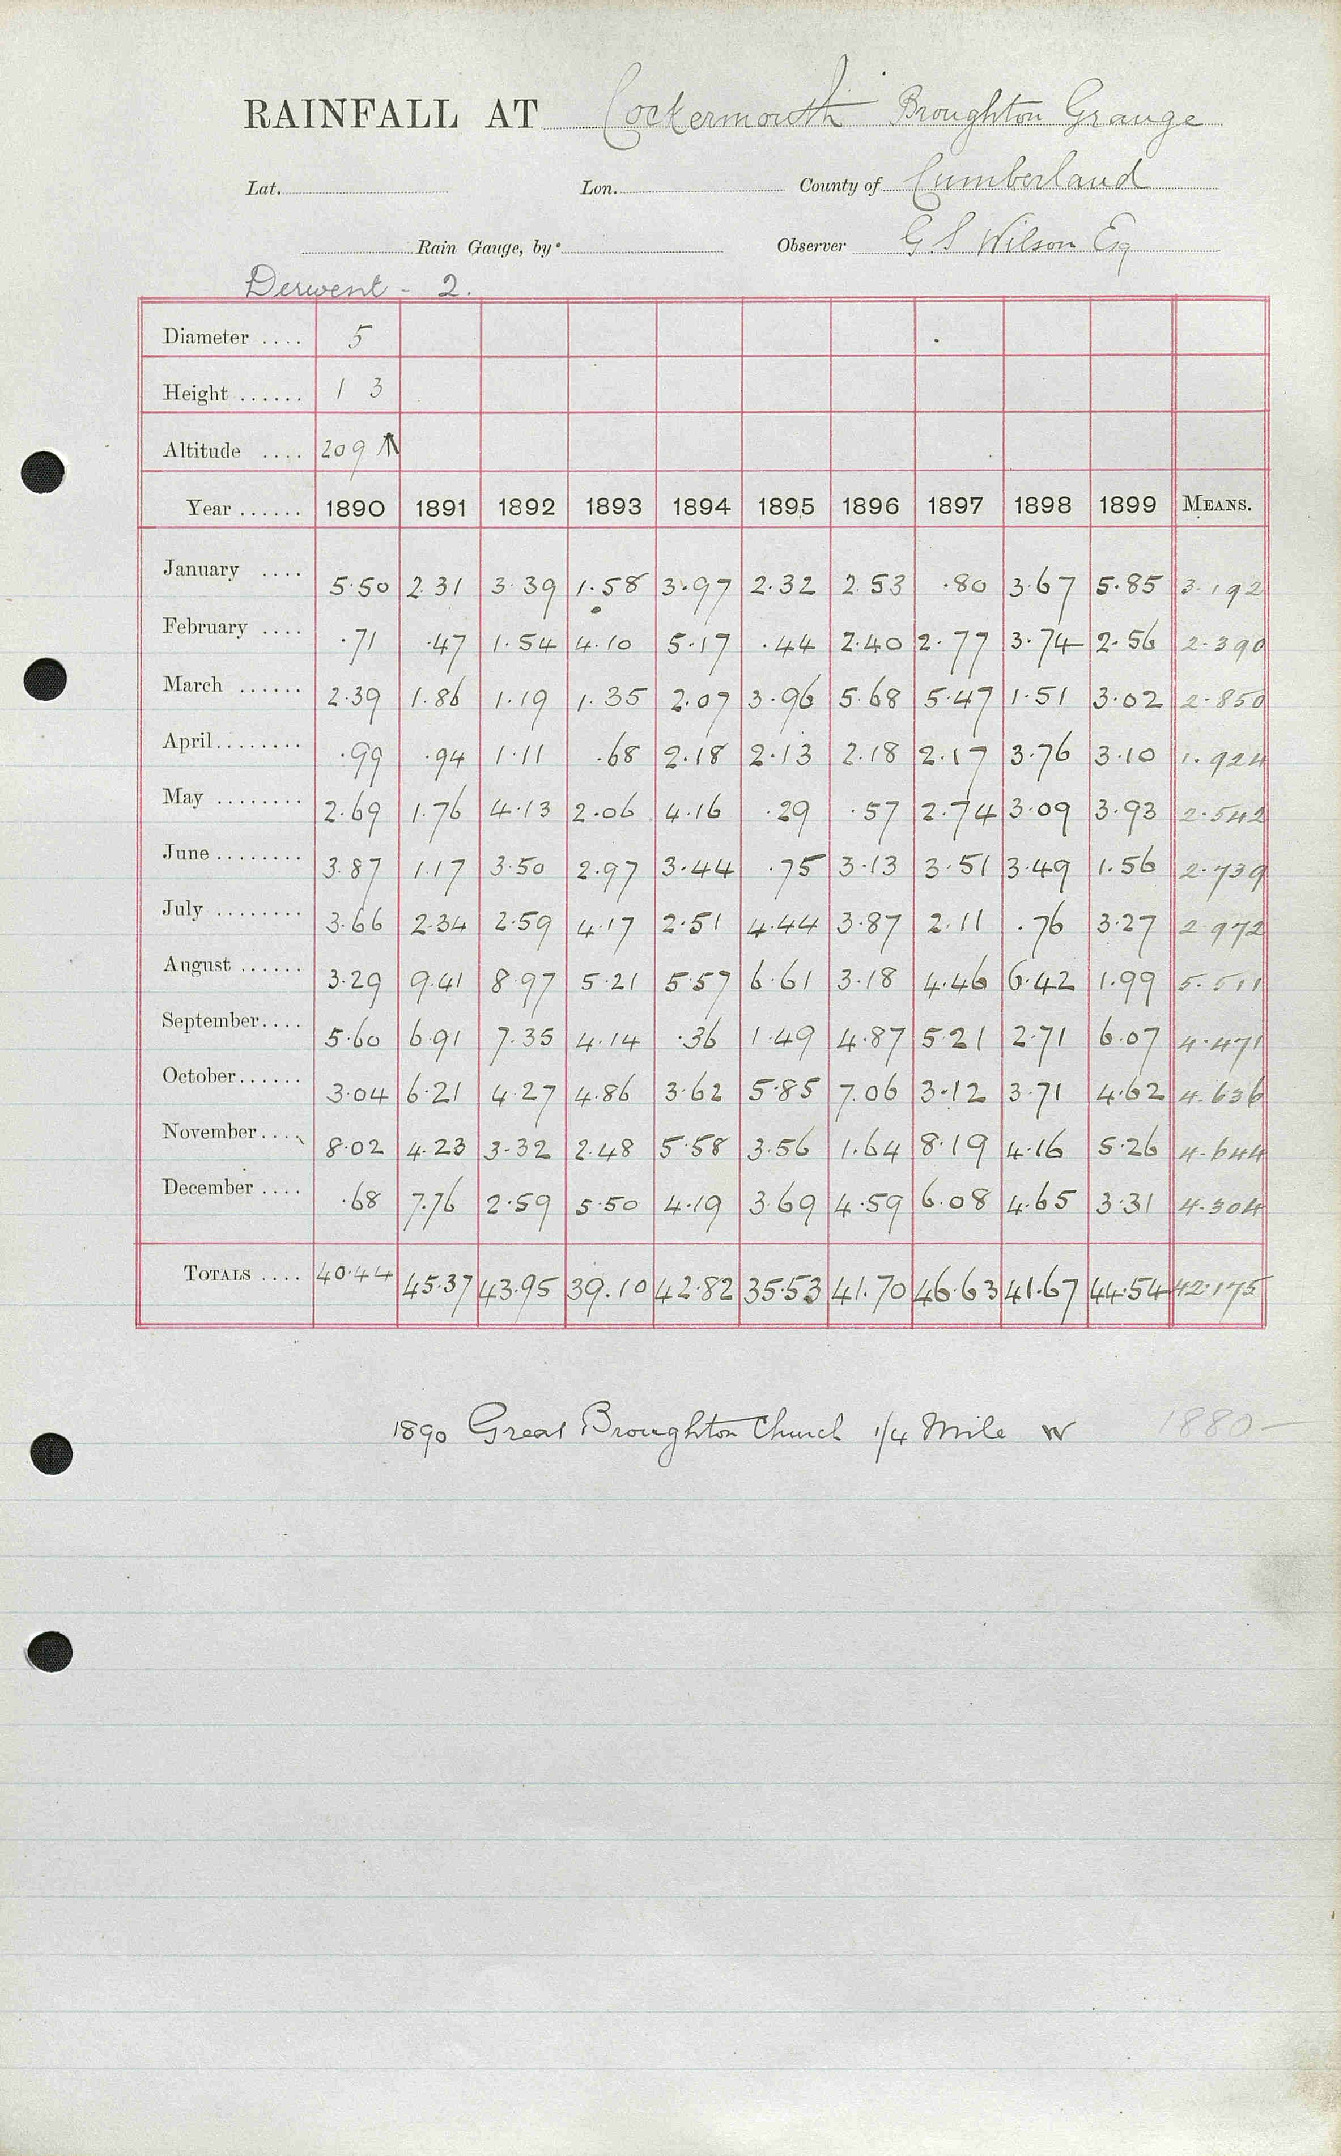 RAINFALL AT Cockermouth Broughton Grange
Lat. Lon. County of Cumberland
Rain Gauge, by Observer G S Wilson Esq
Derwent - 2.
Diameter .... 5
Height ...... 1 3
Altitude .... 209 ↑
Year ...... 1890 1891 1892 1893 1894 1895 1896 1897 1898 1899 MEANS.
January .... 5.50 2.31 3.39 1.58 3.97 2.32 2.53 .80 3.67 5.85 3.192
February .... .71 .47 1.54 4.10 5.17 .44 2.40 2.77 3.74 2.56 2.390
March ...... 2.39 1.86 1.19 1.35 2.07 3.96 5.68 5.47 1.51 3.02 2.850
April ........ .99 .94 1.11 .68 2.18 2.13 2.18 2.17 3.76 3.10 1.924
May ........ 2.69 1.76 4.13 2.06 4.16 .29 .57 2.74 3.09 3.93 2.542
June ........ 3.87 1.17 3.50 2.97 3.44 .75 3.13 3.51 3.49 1.56 2.739
July ........ 3.66 2.34 2.59 4.17 2.51 4.44 3.87 2.11 .76 3.27 2.972
August ...... 3.29 9.41 8.97 5.21 5.57 6.61 3.18 4.46 6.42 1.99 5.511
September .... 5.60 6.91 7.35 4.14 .36 1.49 4.87 5.21 2.71 6.07 4.471
October ...... 3.04 6.21 4.27 4.86 3.62 5.85 7.06 3.12 3.71 4.62 4.636
November .... 8.02 4.23 3.32 2.48 5.58 3.56 1.64 8.19 4.16 5.26 4.644
December .... .68 7.76 2.59 5.50 4.19 3.69 4.59 6.08 4.65 3.31 4.304
TOTALS .... 40.44 45.37 43.95 39.10 42.82 35.53 41.70 46.63 41.67 44.54 42.175
1890 Great Broughton Church 1/4 Mile W 1880-